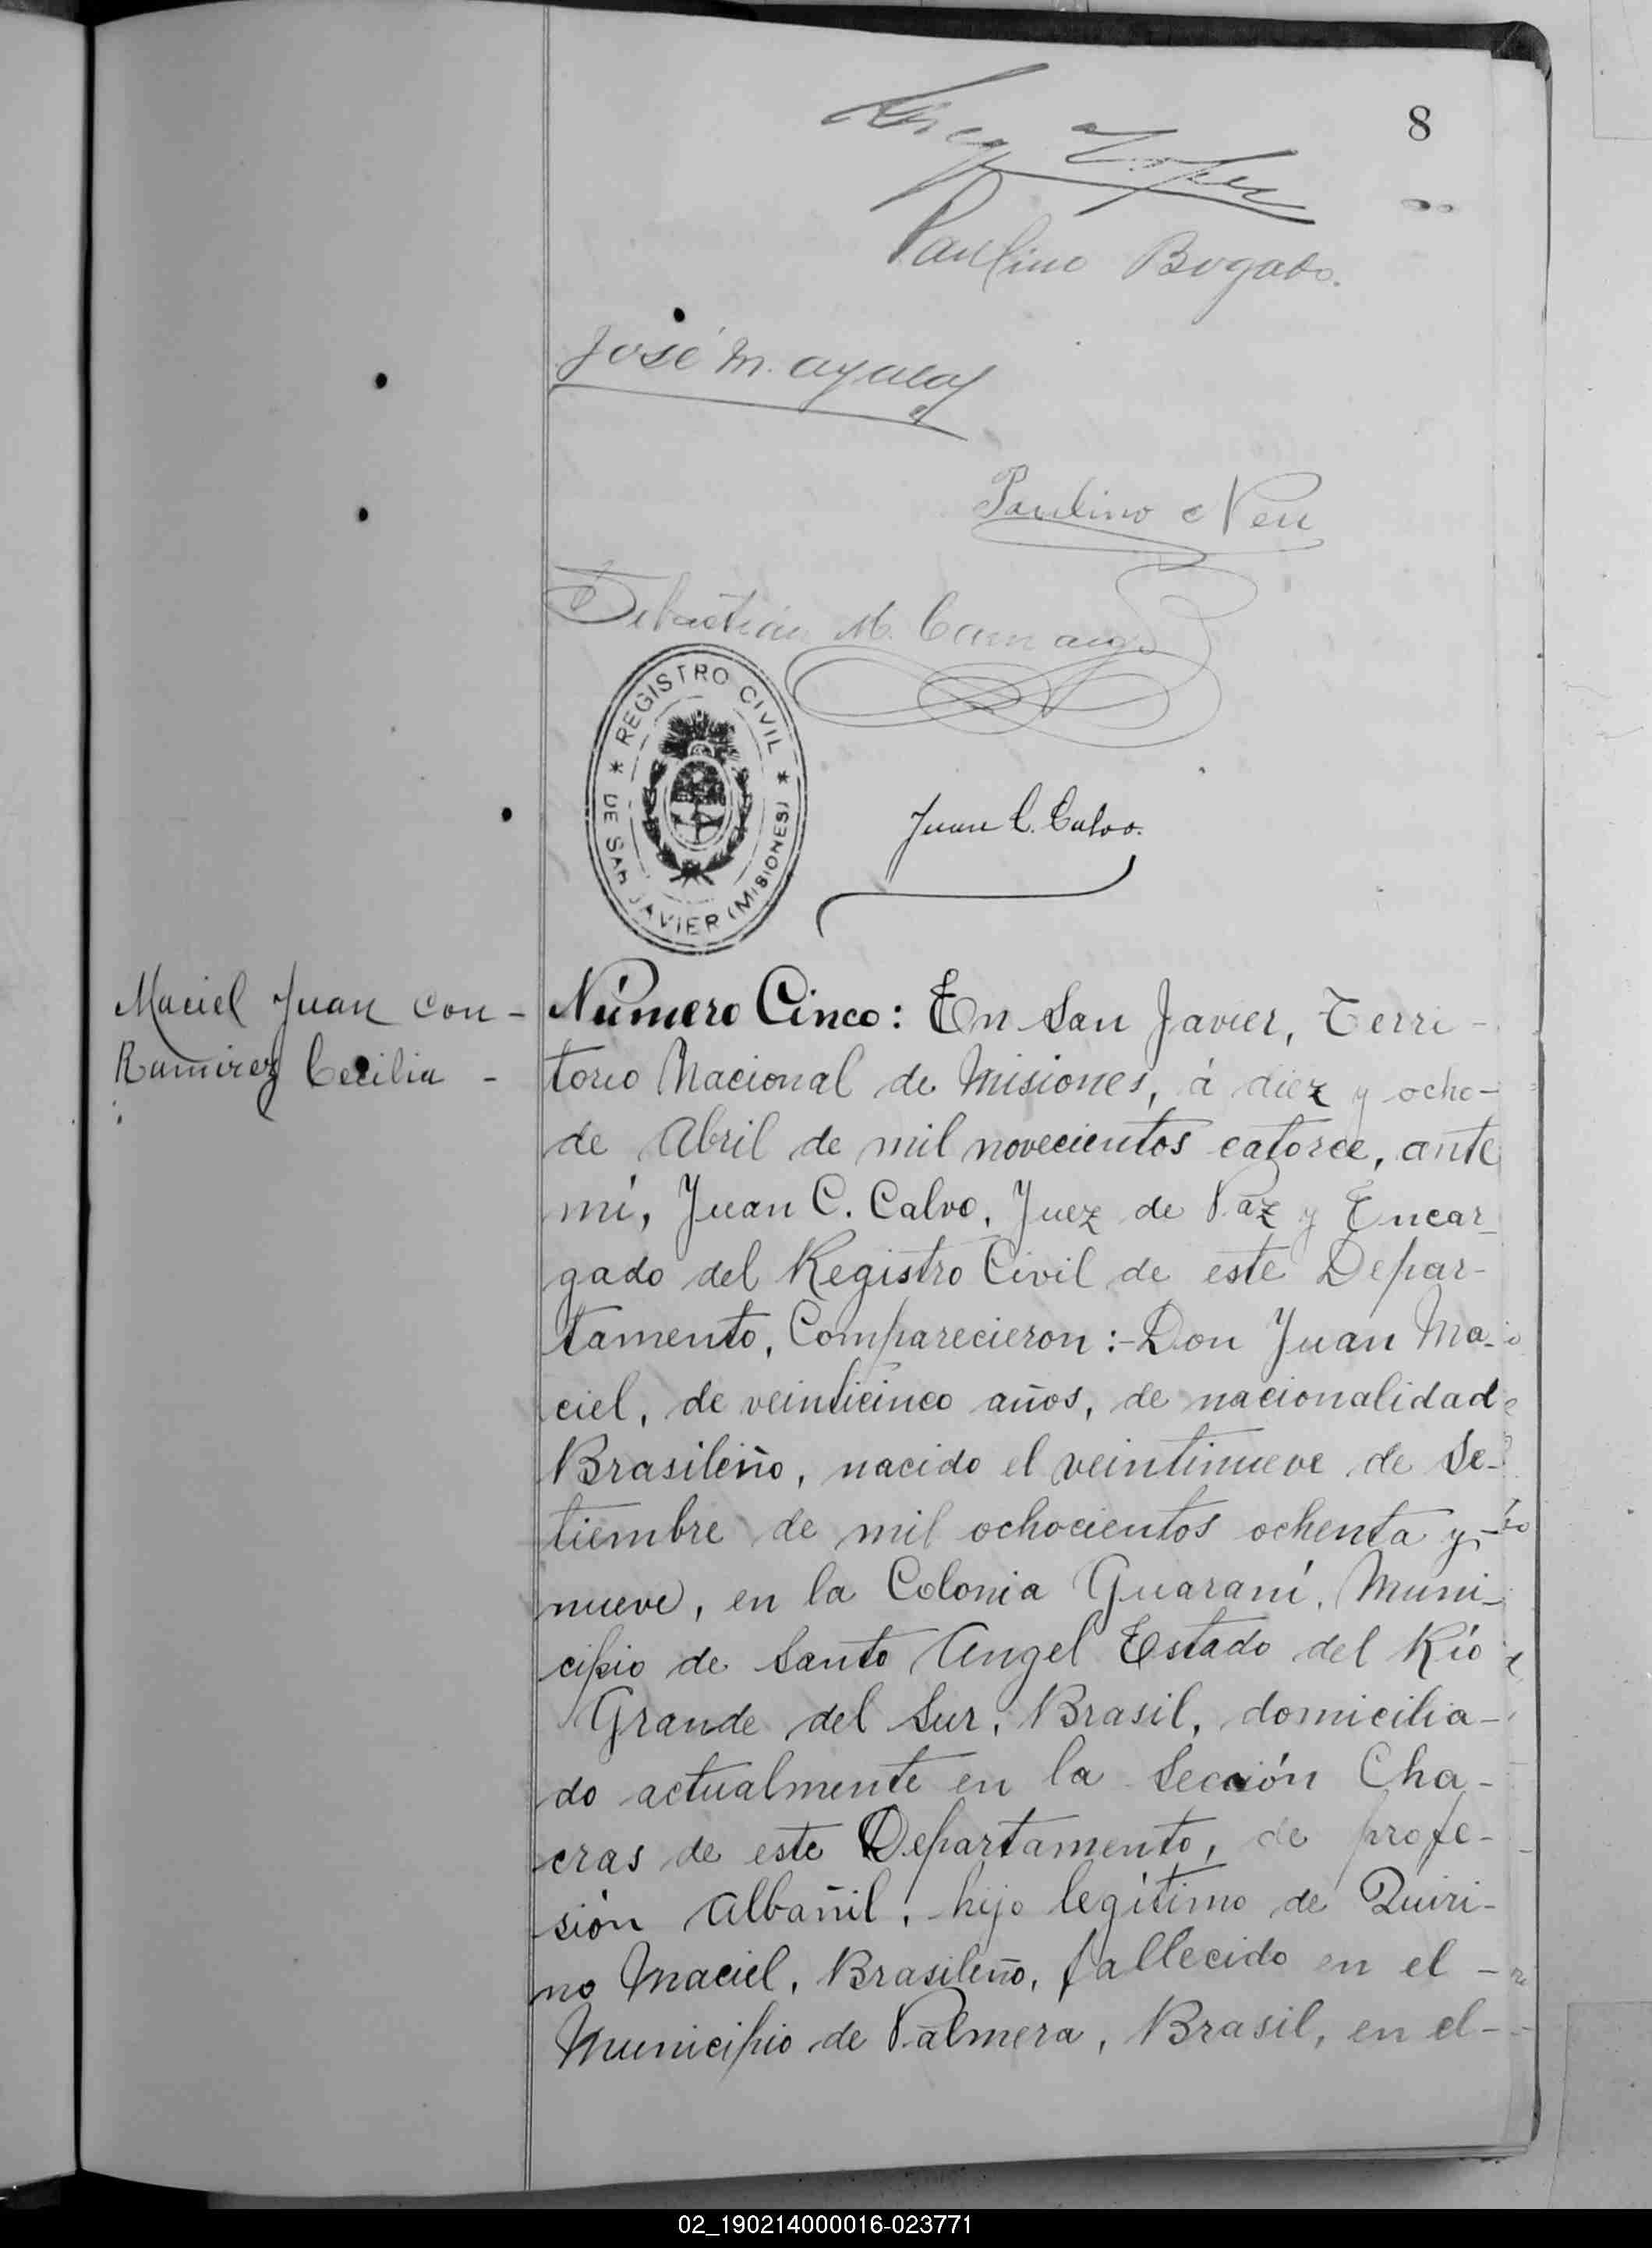 8
Paulino Bogado.
José M. Ayala
Paulino Neu
Sebastián M. Camargo
* REGISTRO CIVIL *
DE SAN JAVIER (MISIONES)
Juan C. Calvo.
Maciel Juan con -
Ramirez Cecilia -
Número Cinco: En San Javier, Terri-
torio Nacional de Misiones, á diez y ocho-
de Abril de mil novecientos catorce, ante
mí, Juan C. Calvo, Juez de Paz y Encar-
gado del Registro Civil de este Depar-
tamento, Comparecieron:- Don Juan Ma-
ciel, de veinticinco años, de nacionalidad
Brasileño, nacido el veintinueve de Se-
tiembre de mil ochocientos ochenta y-
nueve, en la Colonia Guaraní, Muni-
cipio de Santo Angel Estado del Río
Grande del Sur, Brasil, domicilia-
do actualmente en la Sección Cha-
cras de este Departamento, de profe-
sión Albañil, hijo legítimo de Quiri-
no Maciel, Brasileño, fallecido en el -
Municipio de Palmera, Brasil, en el-
02_190214000016-023771